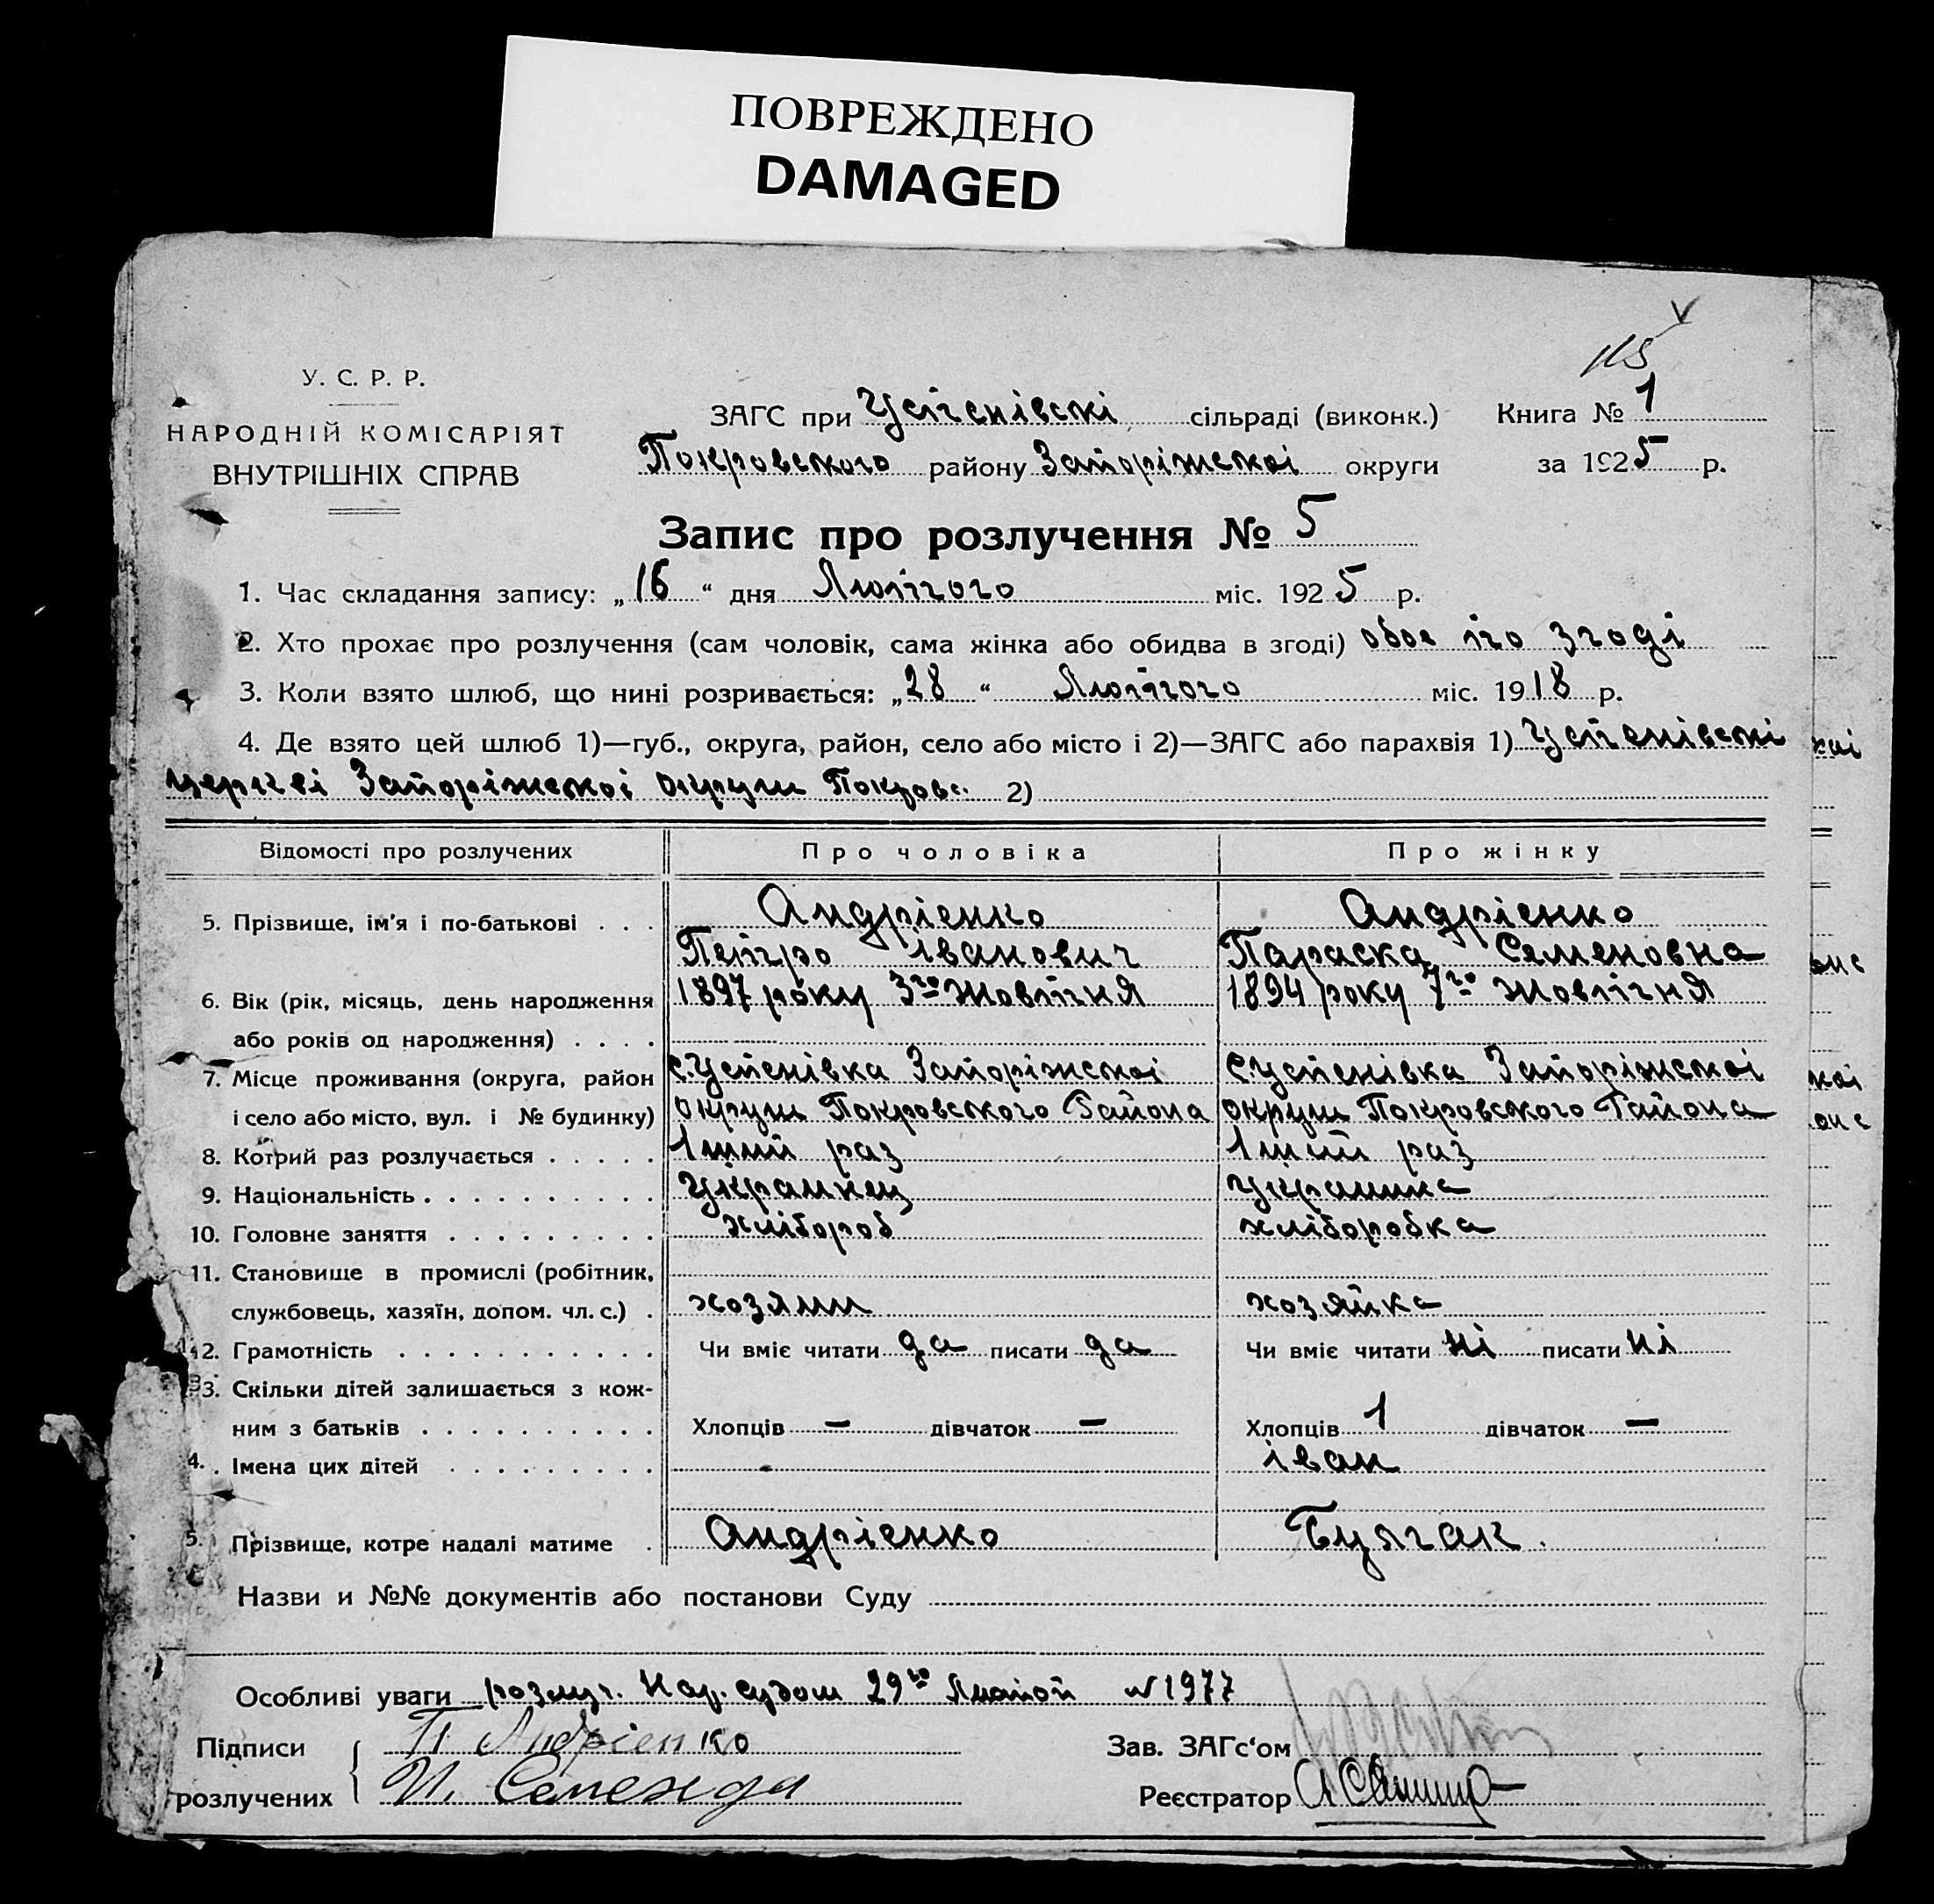 ПОВРЕЖДЕНО
DAMAGED
У. С. Р. Р.
НАРОДНІЙ КОМІСАРІЯТ
ВНУТРІШНІХ СПРАВ
ЗАГС при Успенівскі сільраді (виконк.) Книга № 1
Покровского району Запоріжскоі округи за 1925 р.
Запис про розлучення № 5
1. Час складання запису: „16“ дня Лютого міс. 1925 р.
2. Хто прохає про розлучення (сам чоловік, сама жінка або обидва в згоді) обое по згоді
3. Коли взято шлюб, що нині розривається: „28“ Лютого міс. 1918 р.
4. Де взято цей шлюб 1)—губ., округа, район, село або місто і 2)—ЗАГС або парахвія 1) Успенівскі
церкві Запоріжскоі округи Покровс. 2)
Відомості про розлучених Про чоловіка Про жінку
5. Прізвище, ім'я і по-батькові . . . Андріенко Андріенко
Петро іванович Параска Семеновна
6. Вік (рік, місяць, день народження 1897 року 3го Жовтня 1894 року 7го Жовтня
або років од народження) . . . .
7. Місце проживання (округа, район с. Успенівка Запоріжскоі с. Успенівка Запоріжскоі
і село або місто, вул. і № будинку) округи Покровского Района округи Покровского Района
8. Котрий раз розлучається . . . . . 1ший раз 1ший раз
9. Національність . . . . . . . . . . Украинец Украинка
10. Головне заняття . . . . . . . . . хлібороб хліборобка
11. Становище в промислі (робітник,
службовець, хазяїн, допом. чл. с.) . хозяин хозяйка
12. Грамотність . . . . . . . . . . . Чи вміє читати да писати да Чи вміє читати ні писати ні
13. Скільки дітей залишається з кож-
ним з батьків . . . . . . . . . . Хлопців — дівчаток — Хлопців 1 дівчаток —
4. . Імена цих дітей . . . . . . . . . іван
5. Прізвище, котре надалі матиме . Андріенко Булгак.
Назви и №№ документів або постанови Суду
Особливі уваги розлуч. Нар. судом 29го №1977
Підписи П Андріенко Зав. ЗАГс‘ом
розлучених Реєстратор